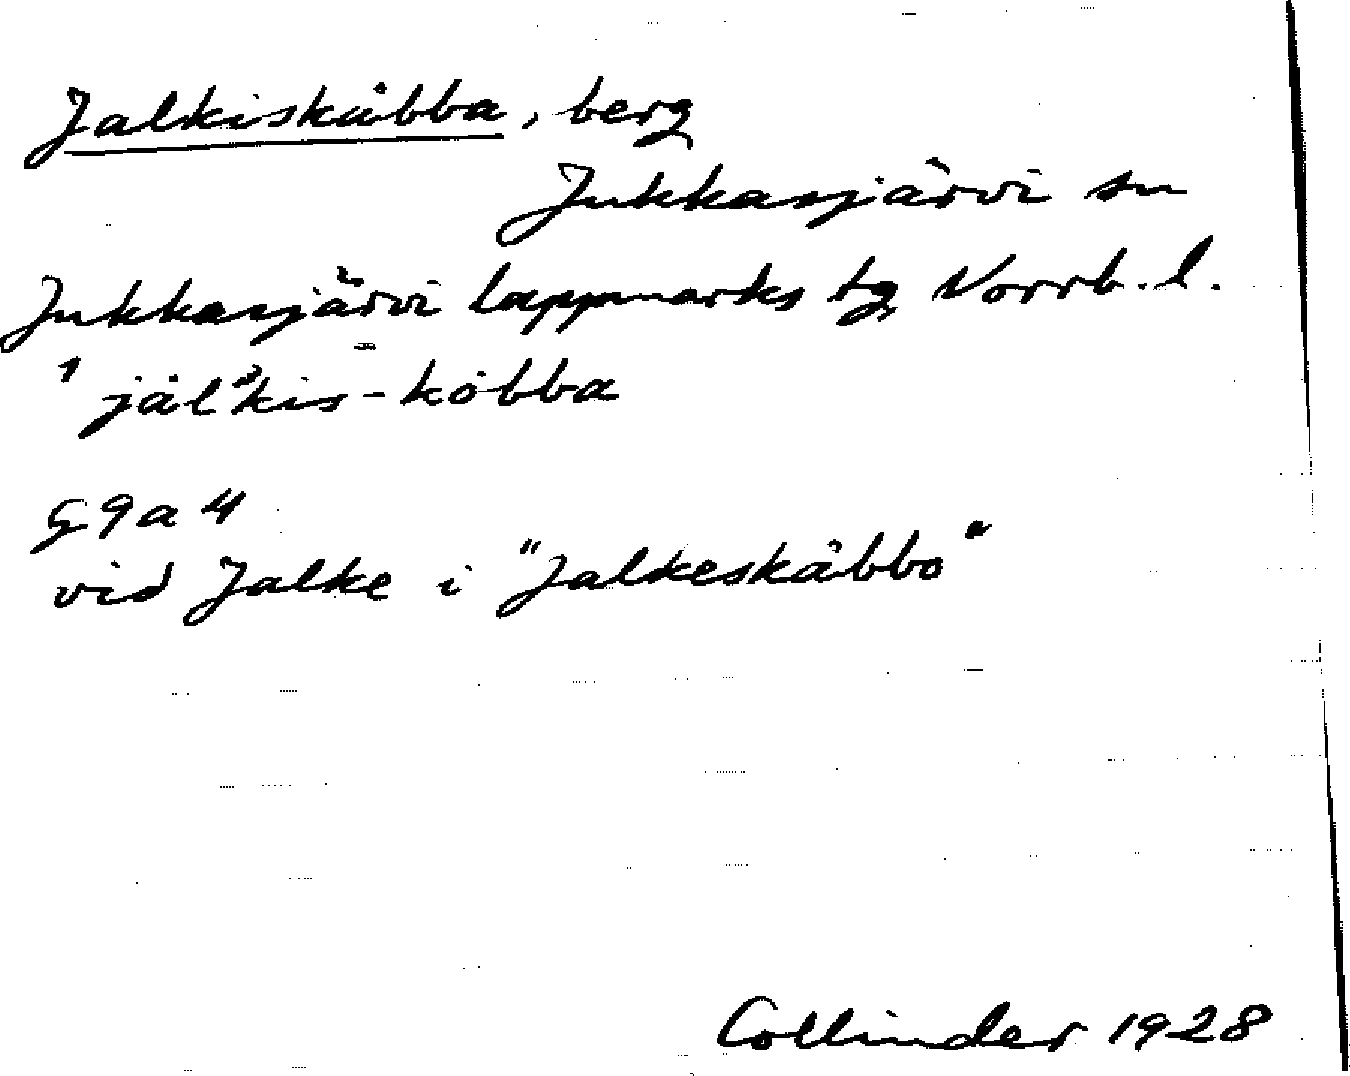 Jalkiskåbba, berg
Jukkasjärvi sn
Jukkasjärvi lappmarks tg Norrb. l.
jål̄'kis-kȯbba
G9a4
vid Jalke i "Jalkeskåbbo"
Collinder 1928